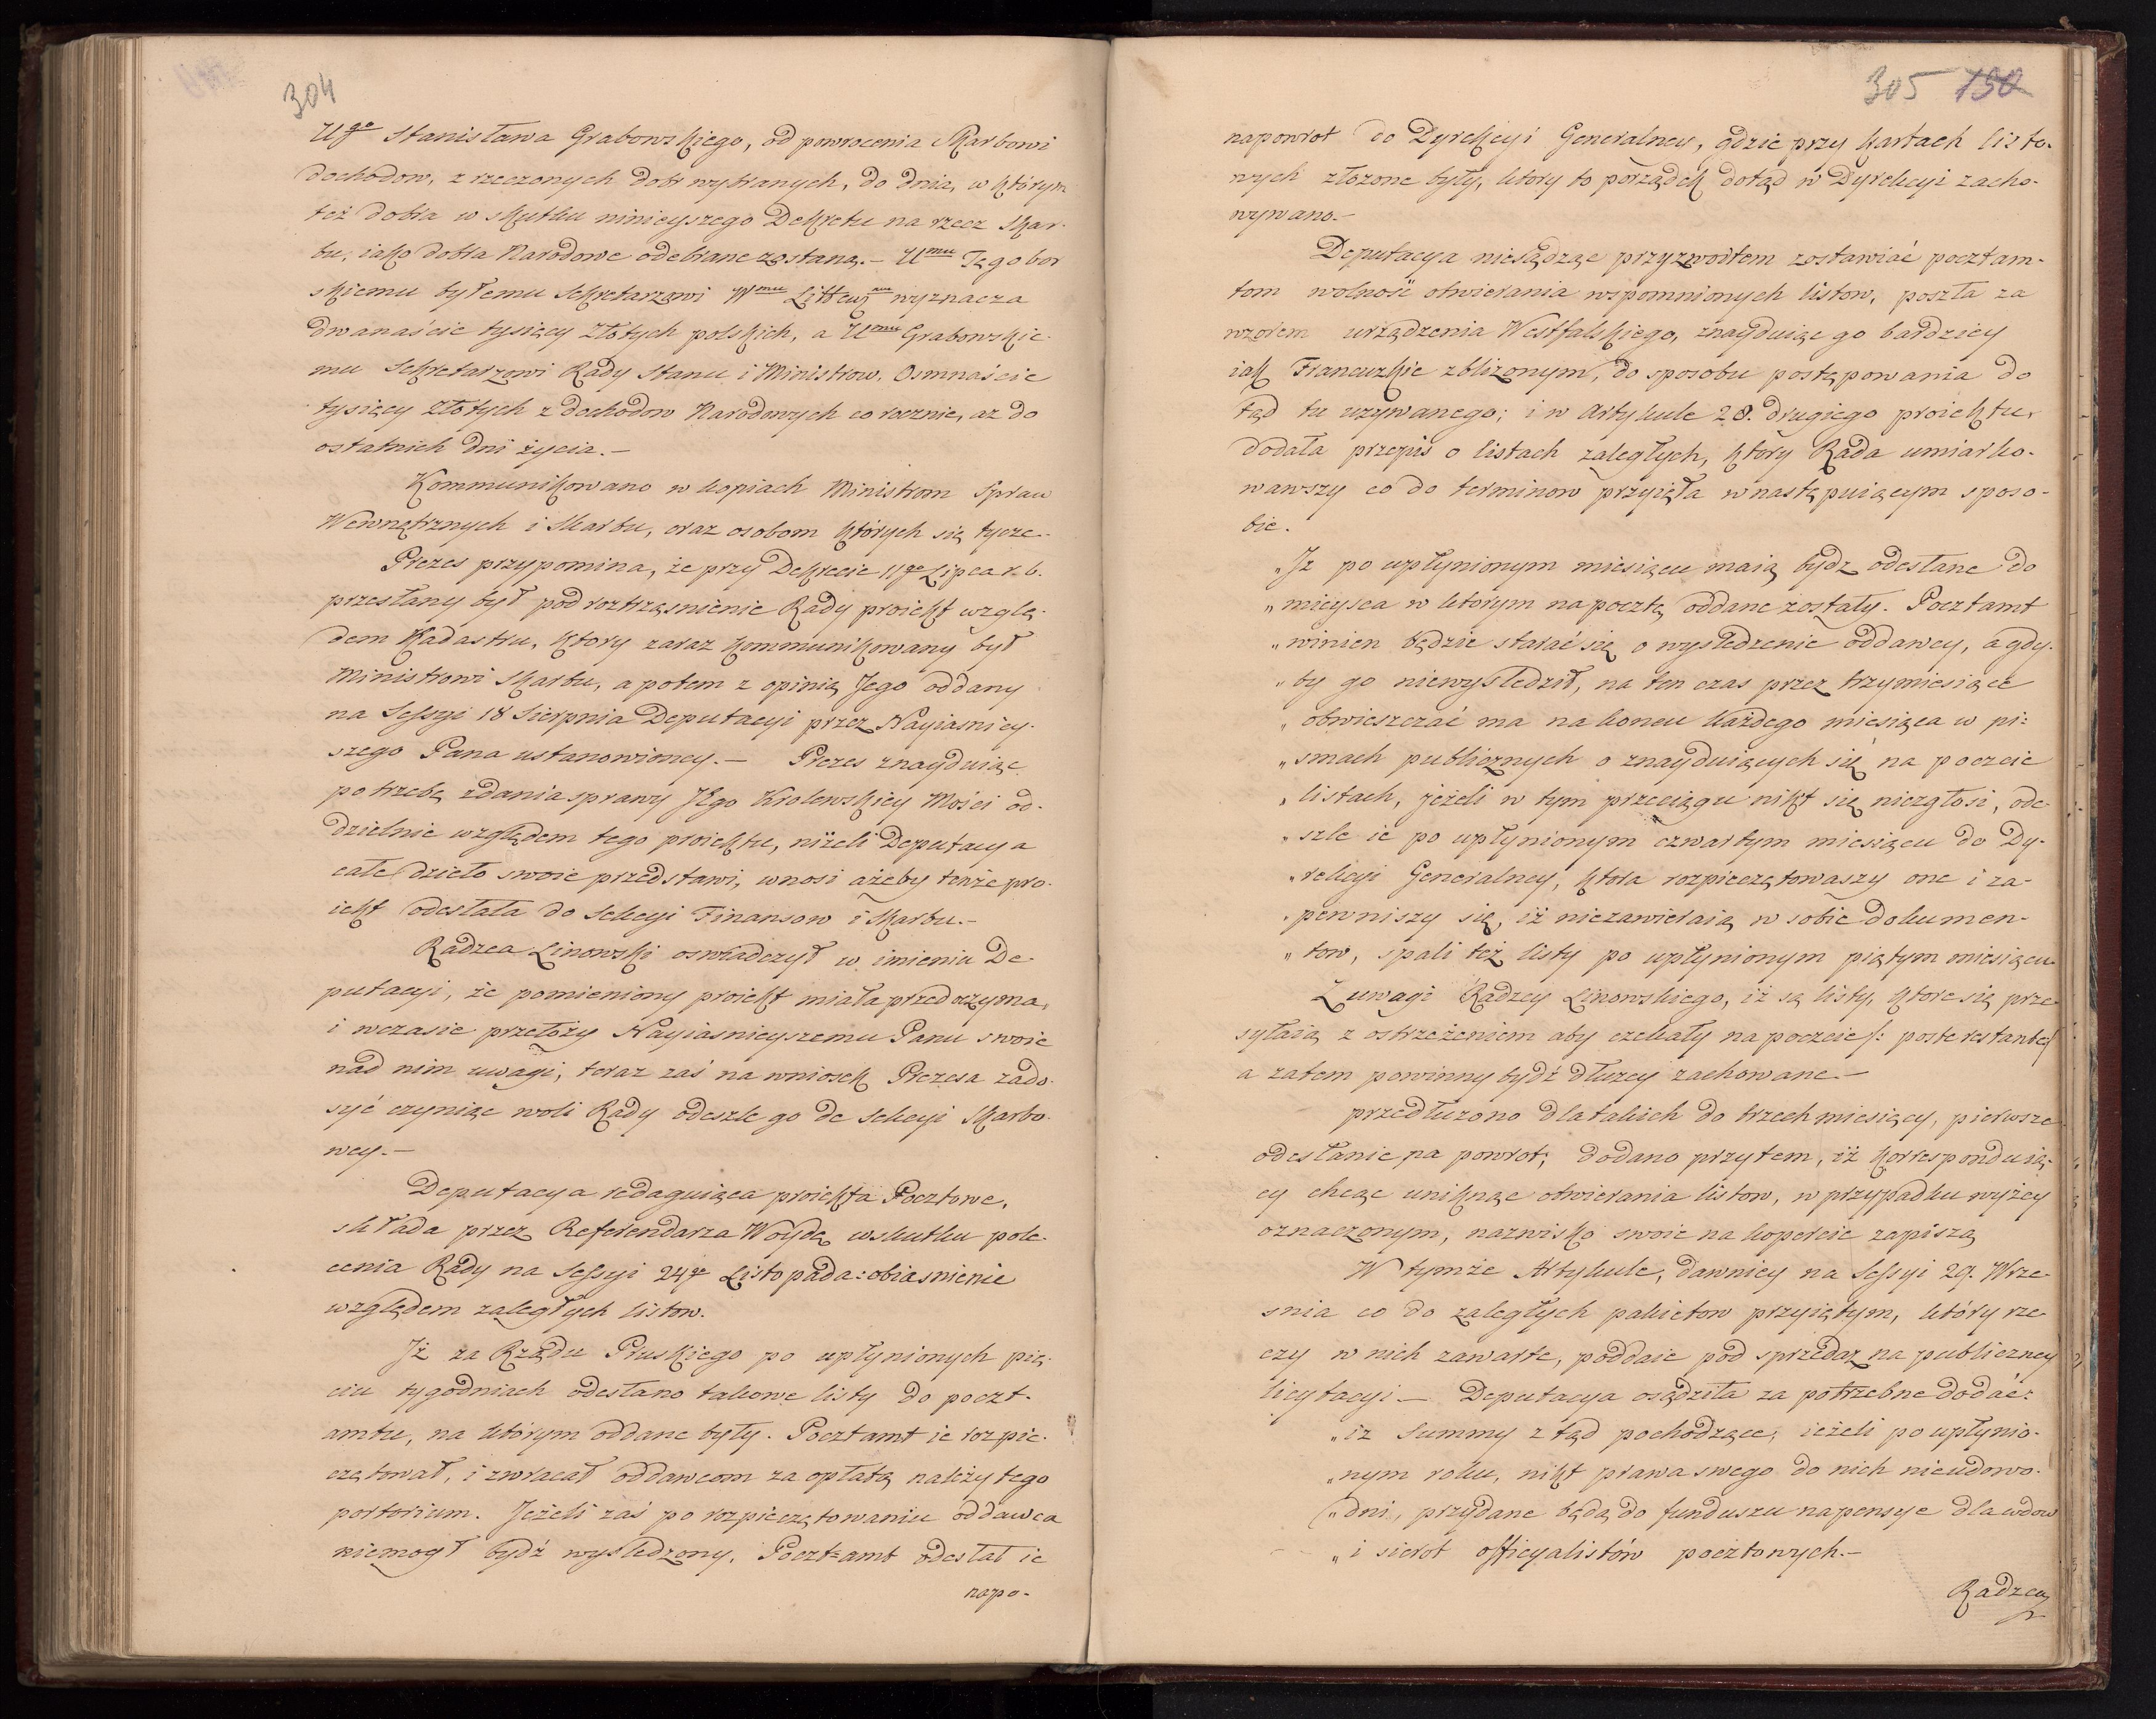 304
Ugo Stanisława Grabowskiego, od powrocenia Skarbowi
dochodow, z rzeczonych dobr wybranych, do dnia, w którym
też dobra w skutku ninieyszego Dekretu na rzecz Skar-
bu, iako dobra Narodowe odebrane zostaną.— Umu Tęgobor
skiemu byłemu Sekretarzowi Wmu wyznacza
dwanaście tysięcy Złotych polskich, a Umu Grabowskie-
mu Sekretarzowi Rady Stanu i Ministrow. Osmnaście
tysięcy Złotych z dochodow Narodowych corocznie, aż do
ostatnich dni życia.—
Kommunikowano w kopiach Ministrom Spraw
Wewnętrznych i Skarbu, oraz osobom których się tycze.
Prezes przypomina, że przy Dekrecie 11go Lipca r. b.
przesłany był pod roztrząsnienie Rady proiekt wzglę-
dem Kadastru, ktory zaraz kommunikowany był
Ministrowi Skarbu, a potem z opinią Jego oddany
na Sessyi 18 Sierpnia Deputacyi przez Nayiasniey-
szego Pana ustanowioney.— Prezes znayduiąc
potrzebę zdania sprawy JEgo Krolewskiey Mości od-
dzielnie względem tego proiektu, niżeli Deputacya
całe dzieło swoie przedstawi, wnosi ażeby tenże pro-
iekt odesłała do Sekcyi Finansow i Skarbu.—
Radzca Linowski oswiadczył w imieniu De-
putacyi, że pomieniony proiekt miała przed oczyma,
i wczasie przełoży Nayiasnieyszemu Panu swoie
nad nim uwagi, teraz zaś na wniosek Prezesa zado-
syć czyniąc woli Rady odeszle go do Sekcyi Skarbo-
wey.—
Deputacya redaguiąca proiekta Pocztowe,
składa przez Referendarza Woydę wskutku pole-
cenia Rady na Sessyi 24go Listopada: obiasnienie
względem zaległych listow.
Iż za Rządu Pruskiego po upłynionych pię-
ciu tygodniach odesłano takowe listy do poczt-
amtu, na którym oddane były. Pocztamt ie rozpie-
czętował, i zwracał oddawcom za opłatą należytego
portorium. Jeżeli zaś po rozpieczętowaniu oddawca
niemogł bydź wysledzony, Poczt=amt odesłał ie
napo-
305 190
napowrot do Dyrekcyi Generalney, gdzie przy kartach listo-
wych złożone były, ktory to porządek dotąd w Dyrekcyi zacho-
wywano.—
Deputacya niesądząc przyzwoitem zostawiać pocztam-
tom wolność otwierania wspomnionych listow, poszła za
wzorem urządzenia Westfalskiego, znayduiąc go bardziey
iak Francuzkie zbliżonym, do sposobu postępowania do
tąd tu uzywanego; i w Artykule 28. drugiego proiektu,
dodała przepis o listach zaległych, ktory Rada umiarko-
wawszy co do terminow przyięła wnastępuiącym sposo-
bie.
„Iż po upłynionym miesiącu maią bydź odesłane do
„mieysca w ktorym na pocztę oddane zostały. Pocztamt
„winien będzie starać się o wysledzenie oddawcy, a gdy-
„by go niewysledził, na ten czas przez trzymiesiące
„obwieszczać ma na koncu każdego miesiąca w pi-
„smach publicznych o znayduiących się na poczcie
„listach, jeżeli w tym przeciągu nikt się niezgłosi, ode-
„szle ie po upłynionym czwartym miesiącu do Dy-
„rekcyi Generalney, ktora rozpieczętowaszy one i za-
„pewniszy się, iż niezawieraią w sobie dokumen-
„tow, spali też listy po upłynionym piątym miesiącu
Z uwagi Radzcy Linowskiego, iż są listy, ktore się prze-
syłaią z ostrzeżeniem aby czekały na poczcie /: poste restante/
a zatem powinny bydź dłużey zachowane.—
przedłużono dla takich do trzech miesięcy, pierwsze
odesłanie na powrot; dodano przytem, iż korrespondui̧-
cy chcąc uniknąc otwierania listow, w przypadku wyżey
oznaczonym, nazwisko swoie na kopercie zapiszą
W tymże Artykule, dawniey na Sessyi 29. Wrze-
snia co do zaległych pakietow przyiętym, który rze-
czy w nich zawarte, poddaie pod sprzedaz na publiczney
licytacyi — Deputacya osądziła za potrzebne dodać:
„iz Summy z tąd pochodzące, ieżeli po upłynio-
„nym roku, nikt prawa swego do nich nieudowo-
„dni, przydane będą do funduszu na pensye dla wdow
„i sierot officyalistów pocztowych.—
Radzca